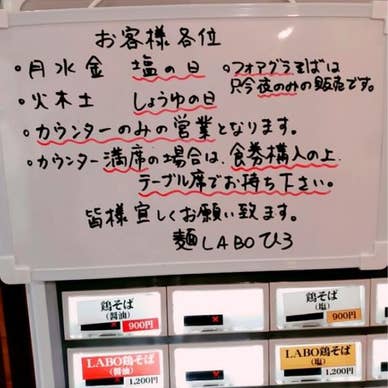 お客様各位
・月水金 塩の日 ・フォアグラそばは
只今夜のみの販売です。
・火木土 しょうゆの日
・カウンターのみの営業となります。
・カウンター満席の場合は、食券構入の上、
テーブル席でお待ち下さい。
皆様宜しくお願い致します。
麺LABOひろ
鶏そば
(醤油)
900円
鶏そば
(塩)
900円
LABO鶏そば
(醤油)
1,200円
LABO鶏そば
(塩)
1,200円